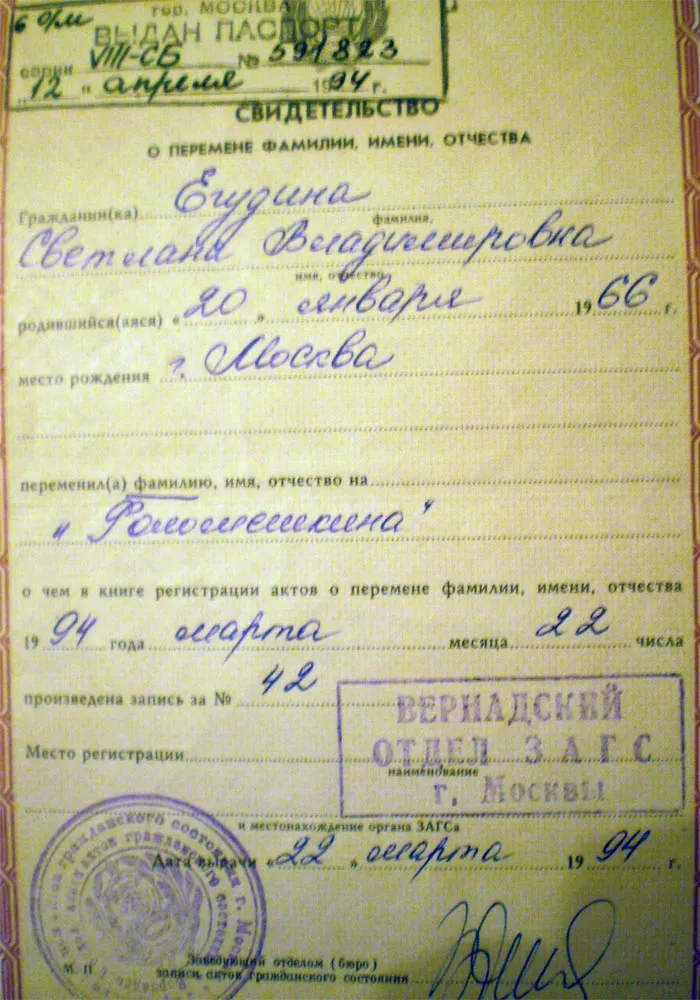 6 о/м
гор. МОСКВА
ВЫДАН ПАСПОРТ
серии VIII-СБ № 591823
„12 “ апреля 1994 г.
СВИДЕТЕЛЬСТВО
О ПЕРЕМЕНЕ ФАМИЛИИ, ИМЕНИ, ОТЧЕСТВА
Гражданин(ка) Егудина
фамилия,
Светлана Владимировна
имя, отчество
родившийся(аяся) «20» января 1966 г.
место рождения г. Москва
переменил(а) фамилию, имя, отчество на
„Роломешкина“
о чем в книге регистрации актов о перемене фамилии, имени, отчества
1994 года марта месяца 22 числа
произведена запись за № 42
ВЕРНАДСКИЙ
Место регистрации ОТДЕЛ ЗАГС
наименование
г. Москвы
и местонахождение органа ЗАГСа
Дата выдачи «22» марта 1994 г.
М. П.
Заведующий отделом (бюро)
записи актов гражданского состояния